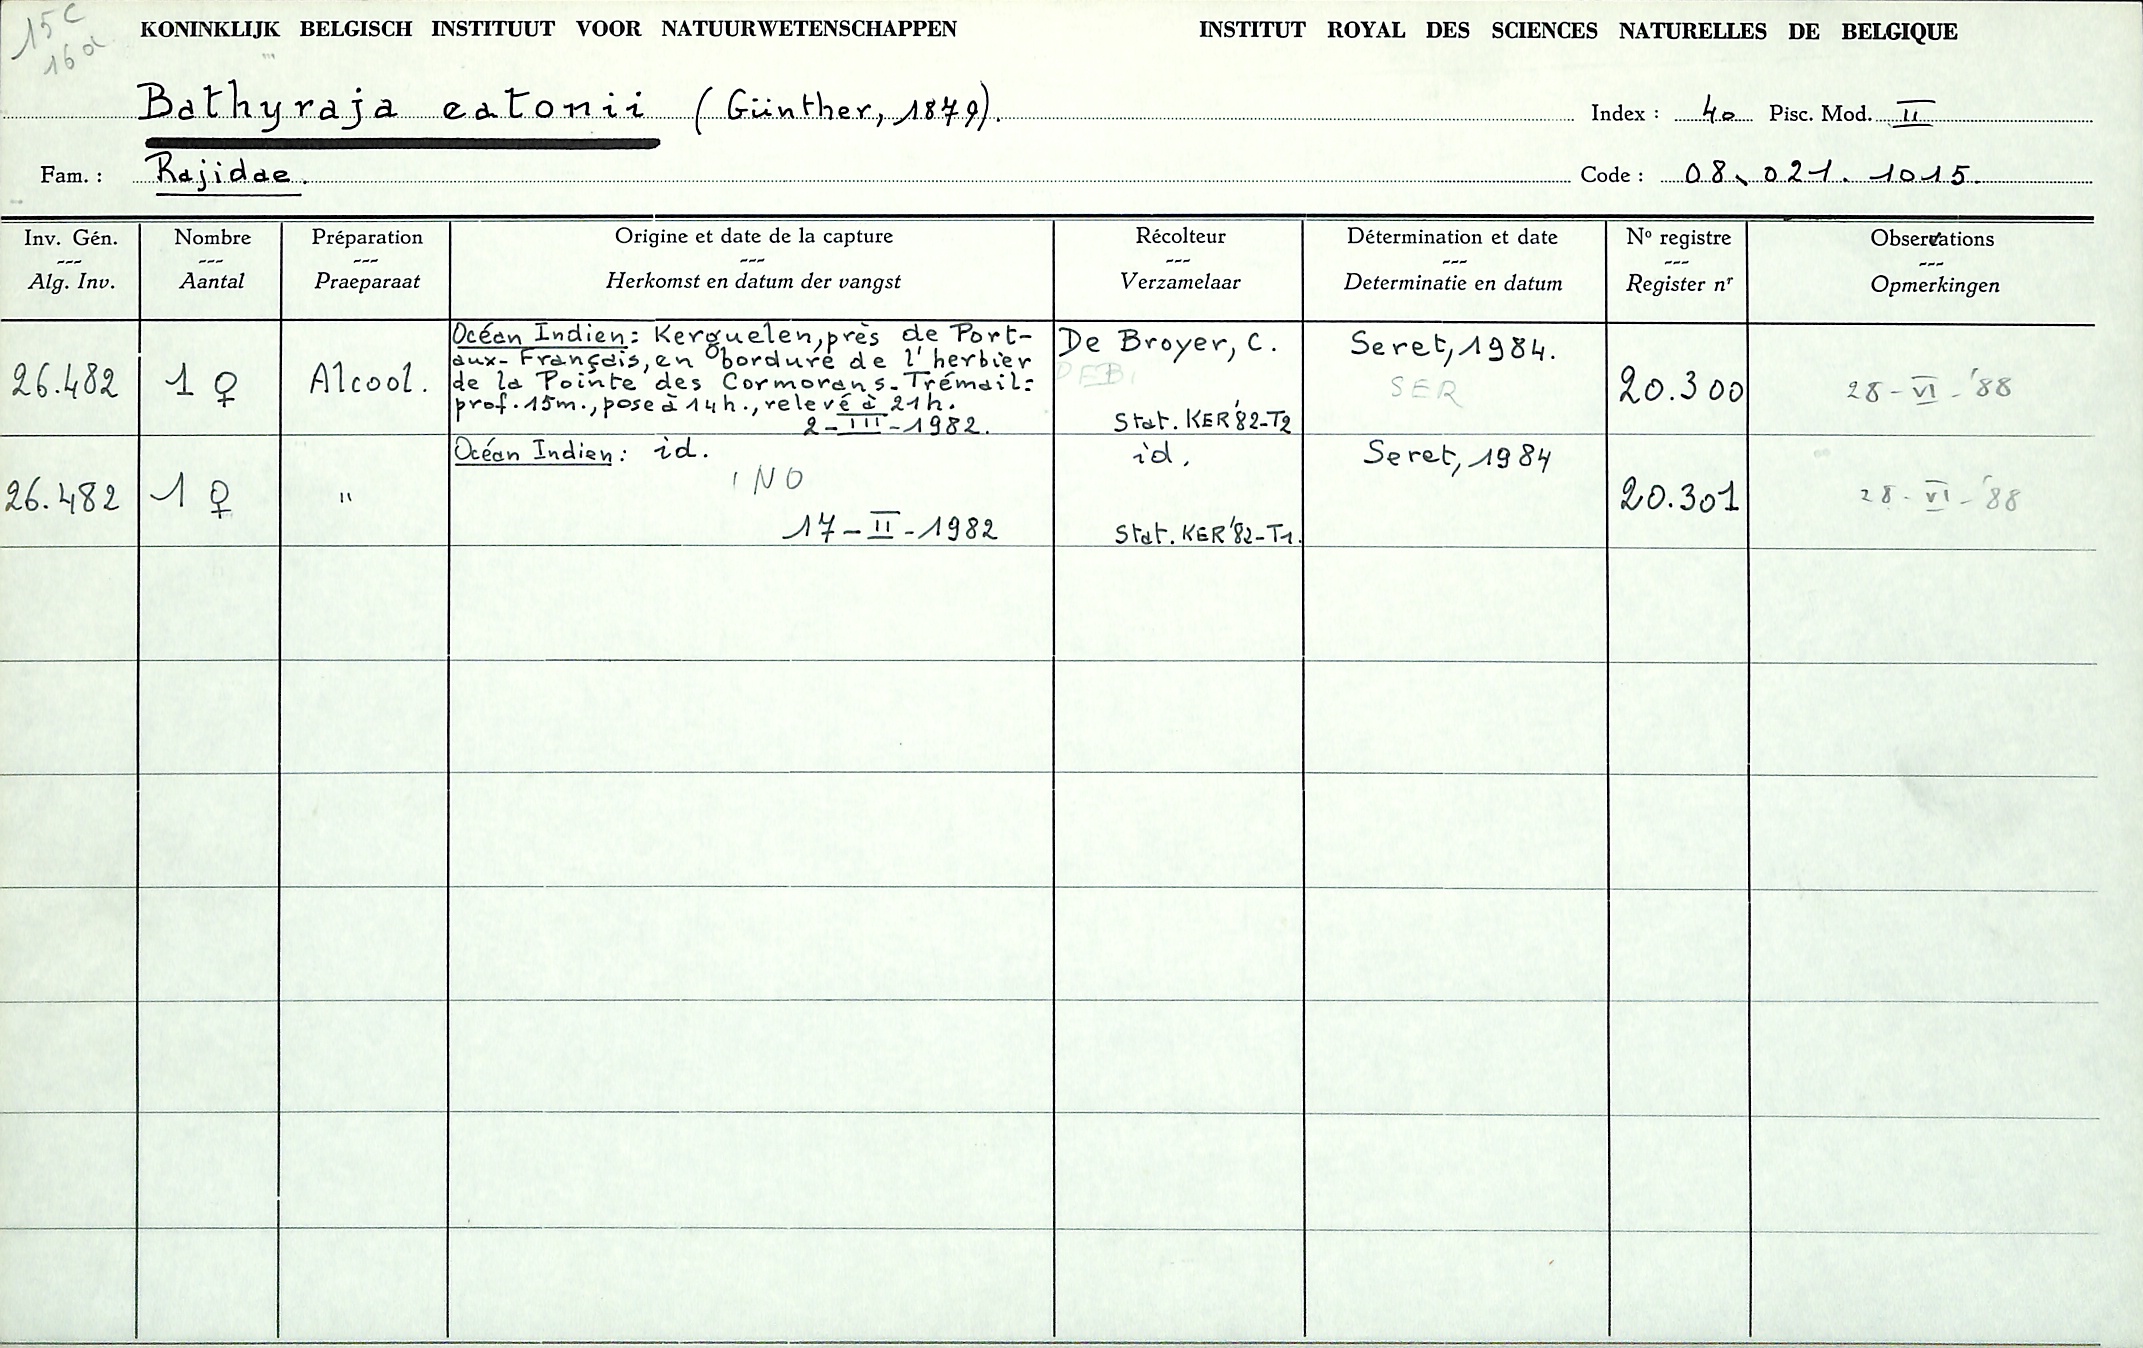 15c
16a
KONINKLIJK BELGISCH INSTITUUT VOOR NATUURWETENSCHAPPEN
INSTITUT ROYAL DES SCIENCES NATURELLES DE BELGIQUE
Bathyraja eatonii (Günther, 1879).
Index : 40 Pisc. Mod. II
Fam. : Rajidae.
Code : 08. 021. 1015.
Inv. Gén. Nombre Préparation Origine et date de la capture Récolteur Détermination et date Nº registre Observations
--- --- --- --- --- --- --- ---
Alg. Inv. Aantal Praeparaat Herkomst en datum der vangst Verzamelaar Determinatie en datum Register nr Opmerkingen
26.482 1 ♀ Alcool.
Océan Indien: Kerguelen, près de Port-
aux-Français, en bordure de l'herbier
de la Pointe des Cormorans. Trémail:
prof. 15m., pose à 14h., relevé à 21h.
2-III-1982.
De Broyer, C.
DEB
Stat. KER'82-T2
Seret, 1984.
SER
20.300
28-VI-'88
26.482 1 ♀ "
Océan Indien: id.
INO
17-II-1982
id.
Stat. KER'82-T1.
Seret, 1984
20.301
28-VI-'88